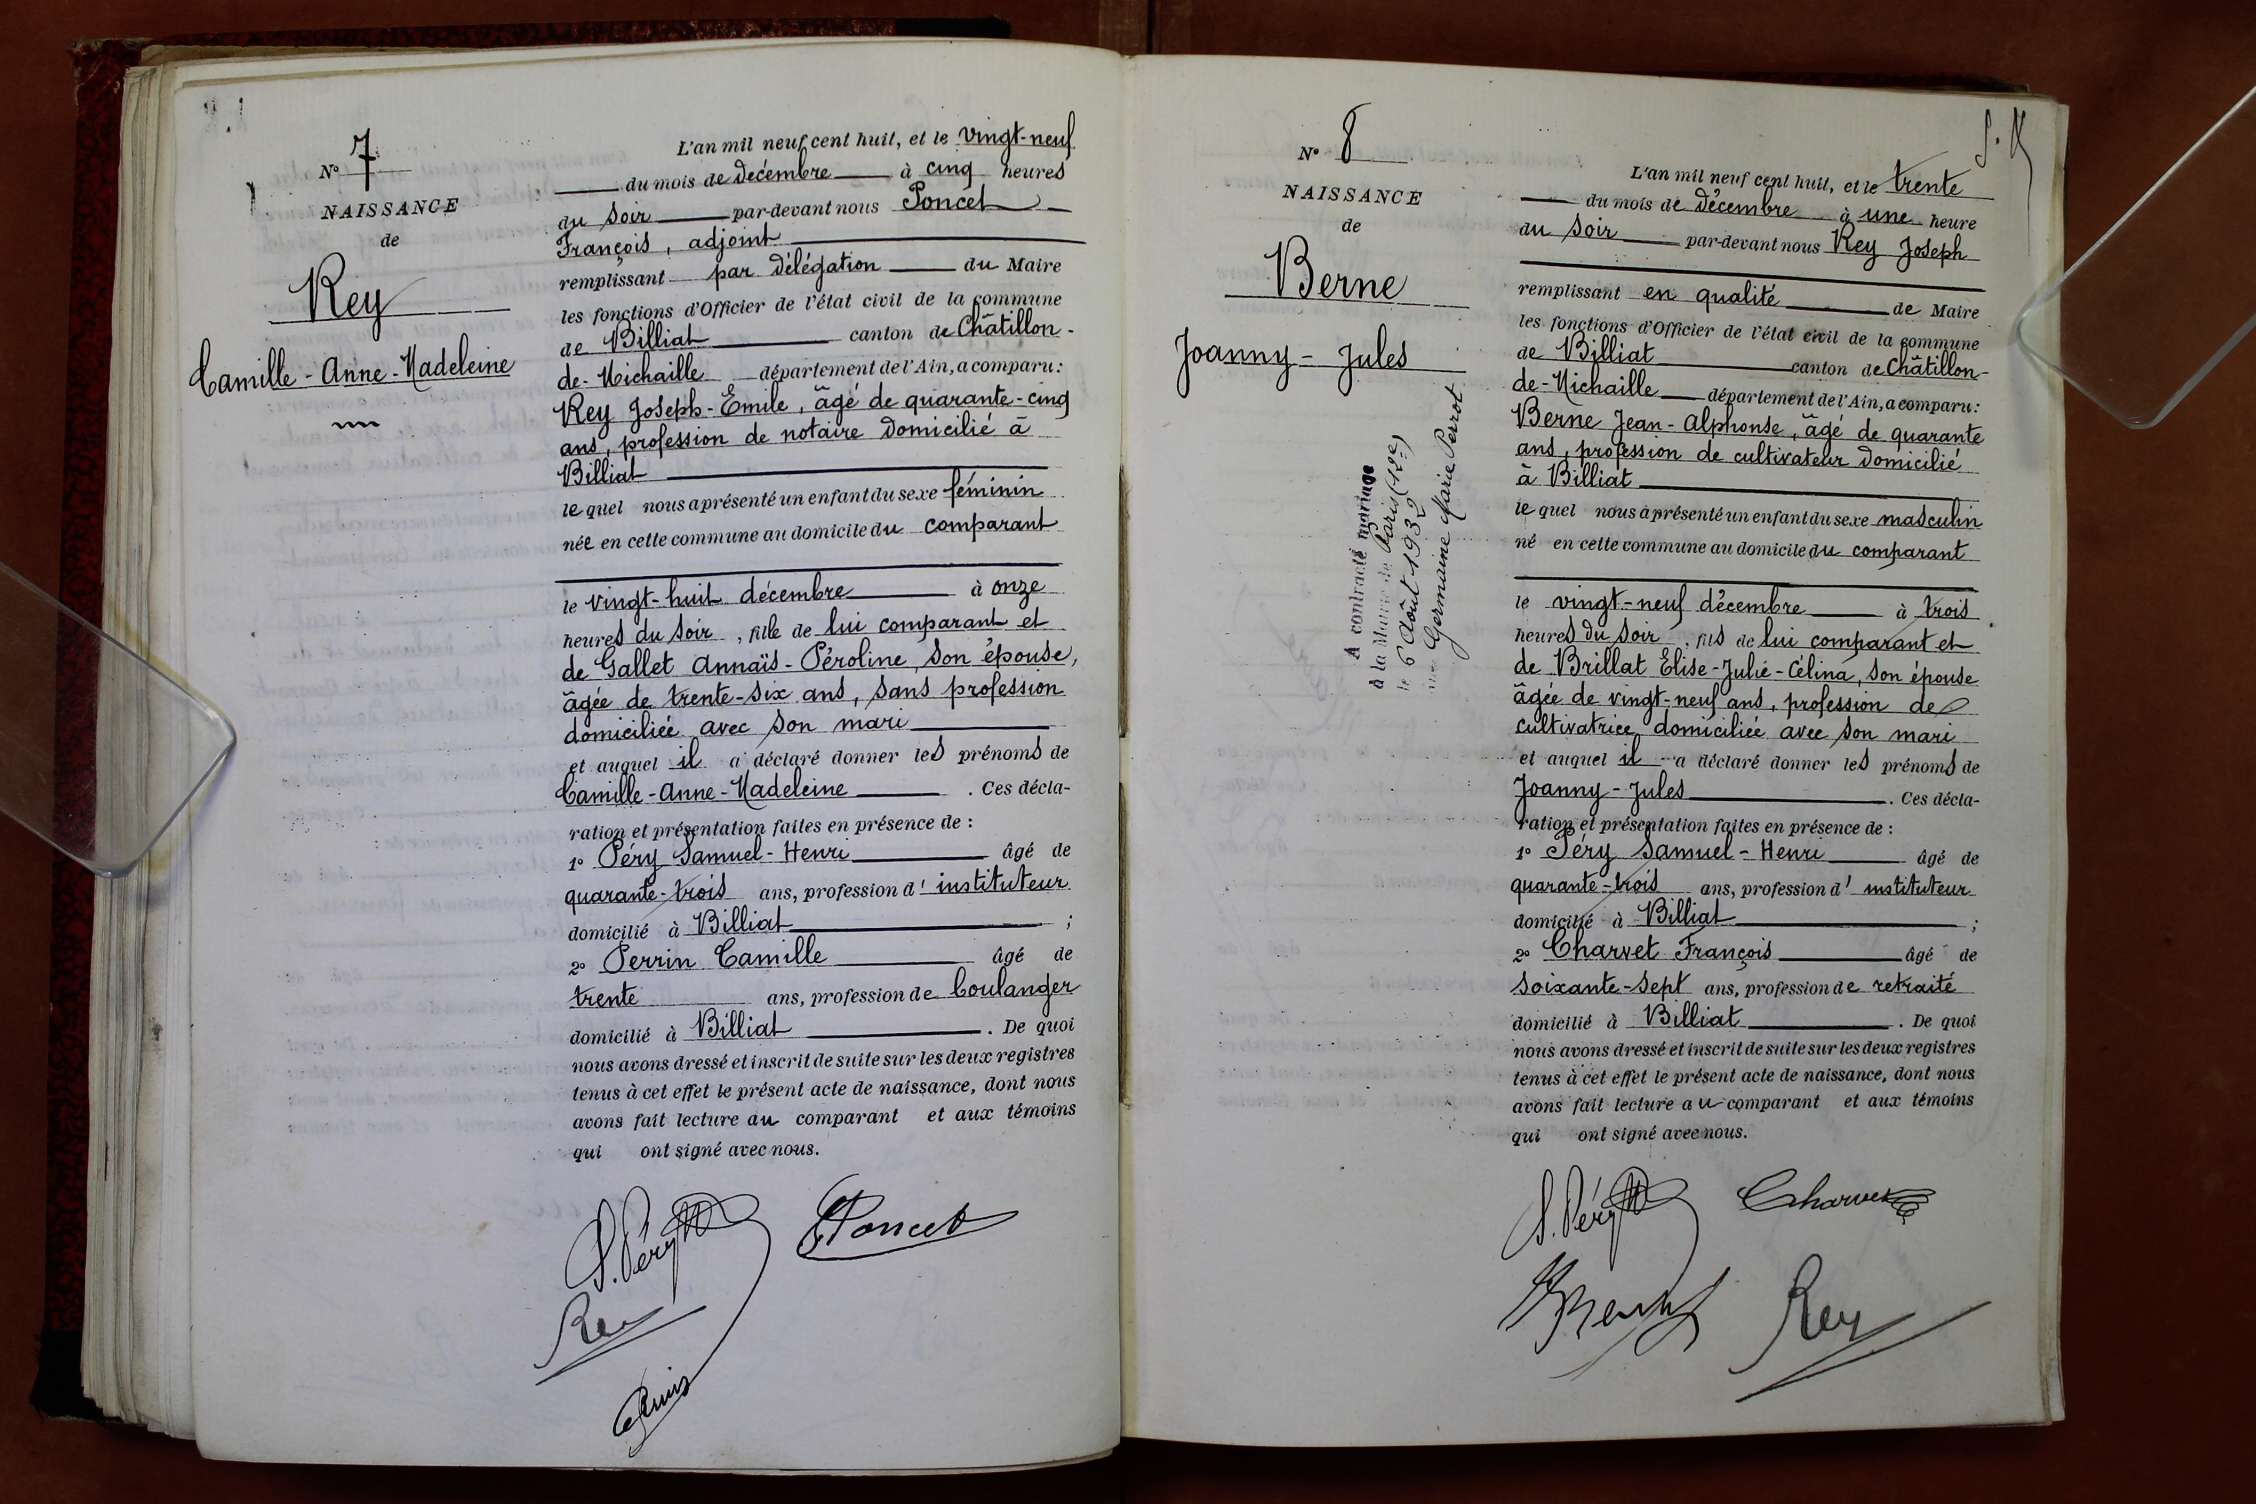 N° 7
NAISSANCE
de
Rey
Camille-Anne-Madeleine
L'an mil neuf cent huit, et le vingt-neuf
du mois de décembre à cinq heures
du soir par-devant nous Poncet
François, adjoint
remplissant par délégation du Maire
les fonctions d'Officier de l'état civil de la commune
de Billiat canton de Châtillon-
de-Michaille département de l'Ain, a comparu:
Rey Joseph-Emile, âgé de quarante-cinq
ans, profession de notaire domicilié à
Billiat
lequel nous a présenté un enfant du sexe féminin
née en cette commune au domicile du comparant
le vingt-huit décembre à onze
heures du soir, fille de lui comparant et
de Gallet Annaïs-Péroline, son épouse,
âgée de trente-six ans, sans profession
domiciliée avec son mari
et auquel il a déclaré donner les prénoms de
Camille-Anne-Madeleine. Ces décla-
ration et présentation faites en présence de:
1° Péry Samuel-Henri âgé de
quarante-trois ans, profession d'instituteur
domicilié à Billiat;
2° Perrin Camille âgé de
trente ans, profession de boulanger
domicilié à Billiat. De quoi
nous avons dressé et inscrit de suite sur les deux registres
tenus à cet effet le présent acte de naissance, dont nous
avons fait lecture au comparant et aux témoins
qui ont signé avec nous.
S. Péry
Poncet
Rey
N° 8
NAISSANCE
de
Berne
Joanny-Jules
A contracté mariage
à la Mairie de Paris (12e)
le 6 Août 1932
Germaine Marie Perrot
L'an mil neuf cent huit, et le trente
du mois de décembre à une heure
du soir par-devant nous Rey Joseph
remplissant en qualité de Maire
les fonctions d'Officier de l'état civil de la commune
de Billiat canton de Châtillon-
de-Michaille département de l'Ain, a comparu:
Berne Jean-Alphonse, âgé de quarante
ans, profession de cultivateur domicilié
à Billiat
lequel nous a présenté un enfant du sexe masculin
né en cette commune au domicile du comparant
le vingt-neuf décembre à trois
heures du soir, fils de lui comparant et
de Brillat Elise-Julie-Célina, son épouse
âgée de vingt-neuf ans, profession de
cultivatrice domiciliée avec son mari
et auquel il a déclaré donner les prénoms de
Joanny-Jules. Ces décla-
ration et présentation faites en présence de:
1° Péry Samuel-Henri âgé de
quarante-trois ans, profession d'instituteur
domicilié à Billiat;
2° Charvet François âgé de
soixante-sept ans, profession de retraité
domicilié à Billiat. De quoi
nous avons dressé et inscrit de suite sur les deux registres
tenus à cet effet le présent acte de naissance, dont nous
avons fait lecture au comparant et aux témoins
qui ont signé avec nous.
S. Péry Charvet
Rey